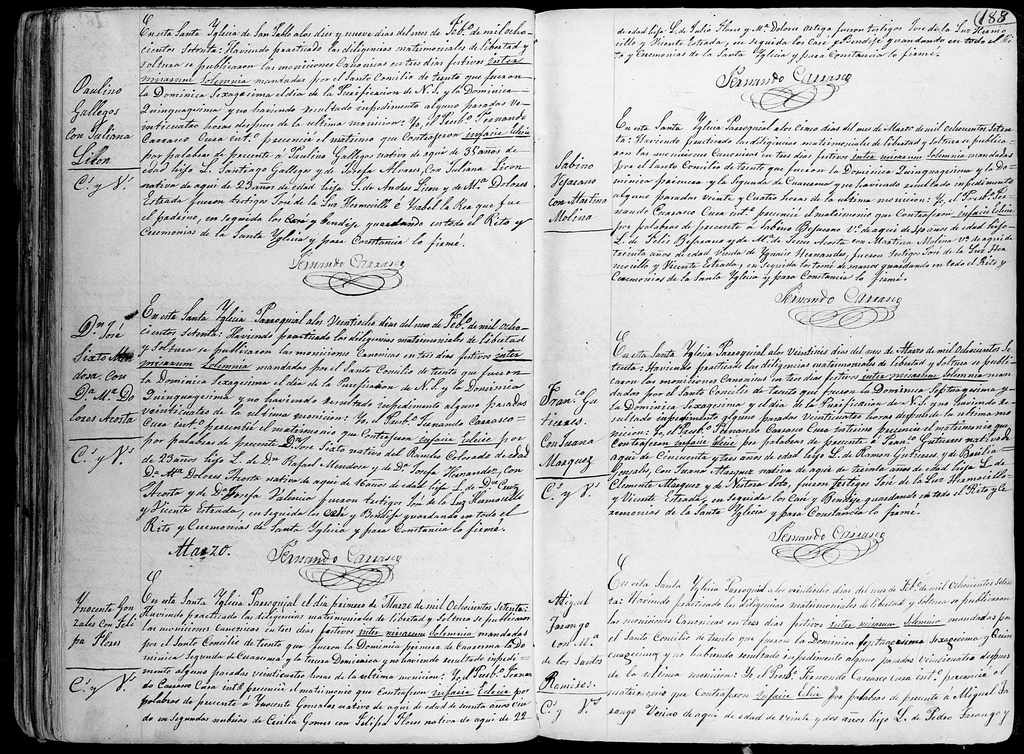 Paulino
Gallegos
con Juliana
Licon
C.s y V.s
En esta Santa Yglesia de San Pablo a los diez y nueve dias del mes de Feb.o de mil ocho-
cientos Setenta: Haviendo practicado las diligencias matrimoniales de libertad y
soltura se publicaron las moniciones Canonicas en tres dias festivos inter
misarum Solemnia mandadas por el Santo Concilio de trento que fueron
la Dominica Sexagecima el dia de la Purificacion de N. S. y la Dominica
Quinquagesima y no haviendo resultado impedimento alguno pasadas ve-
inticuatro horas despues de la ultima monicion: Yo, el Presb.o Fernando
Carrasco Cura int.o presencié el matrimo que Contrageron infacie Eclecie
por palabras de presente á Paulino Gallegos nativo de aqui de 35 años de
edad hijo L. Santiago Gallegos y de Josefa Alvares, Con Juliana Licon
nativa de aqui de 23 años de edad hija L. de Andres Licon y de M.a Dolores
Estrada fueron testigos José de la Luz Hermocillo é Ysabel la Rea que fue
el padrino, en seguida los Casé y bendije guardando en todo el Rito y
Ceremonias de la Santa Yglecia y para Constancia lo firmé.
Fernando Carrasco
D.n José
Sixto Men
dosa. con
D.a M.a Do
lores Acosta
C.s y V.s
En esta Santa Yglecia Parroquial a los Veintiocho dias del mes de Feb.o de mil ocho-
cientos Setenta: Haviendo practicado las diligencias matrimoniales de libertad
y Soltura se publicaron las moniciones Canonicas en tres dias festivos inter
misarum Solemnia mandadas por el Santo Concilio de trento que fueron
la Dominica Sexagecima el dia de la Purificacion de N. S. y la Dominica
Quinquagesima y no haviendo resultado impedimento alguno pasadas
veinticuatro horas de la ultima monicion: Yo, el Presb.o Fernando Carrasco
Cura int.o presencié el matrimonio que Contrageron infacie Eclecie por
por palabras de presente D.n José Sixto nativo del Rancho Colorado de edad
de 23 años hijo L. de D.n Rafael Mendosa y de D.a Josefa Hernandez, con
D.a M.a Dolores Acosta nativa de aqui de 16 años de edad hija L. de D.n Cruz
Acosta y de D.a Josefa Valencia fueron testigos José de la Luz Hermocillo
y Vicente Estrada, en seguida los Casé y Bendije guardando en todo el
Rito y Ceremonias de Santa Yglecia y para Constancia lo firmé.
Marzo.
Fernando Carrasco
Ynocente Gon
zales con Feli
pa Flores
C.s y V.s
En esta Santa Yglecia Parroquial el dia primero de Marzo de mil Ochocientos Setenta:
Haviendo practicado las diligencias matrimoniales de libertad y Soltura se publicaron
las moniciones Canonicas en tres dias festivos inter misarum Solemnia mandadas
por el Santo Concilio de trento que fueron la Dominica primera de Cuaresma la Do-
minica Segunda de Cuaresma y la tercera Dominica y no haviendo resultado impedi-
mento alguno pasadas veinticuatro horas de la ultima monicion: Yo, el Presb.o Fernan-
do Carrasco Cura int.o presencié el matrimonio que Contrageron infacie Eclecie por
palabras de presente á Ynocente Gonzales nativo de aqui de edad de cuenta años ciu-
do en Segundas nubcias de Cecilia Gomes con Felipa Flores nativa de aqui de 22
188
de edad hija L. de Julio Flores y M.a Dolores Ortega fueron testigos José de la Luz Hermo
cillo y Vicente Estrada, en seguida los Casé y Bendije guardando en todo el Ri-
to y Ceremonias de la Santa Yglecia y para Constancia lo firmé.
Fernando Carrasco
Sabino
Bejarano
con Martina
Molina
En esta Santa Yglecia Parroquial a los Cinco dias del mes de Marzo de mil Ochocientos Seten-
ta: Haviendo practicado las diligencias matrimoniales de libertad y soltura se publica-
ron las moniciones Canonicas en tres dias festivos inter misarum Solemnia mandadas
por el Santo Concilio de trento que fueron la Dominica Quinquagesima y la Do-
minica primera y la Segunda de Cuaresma y no haviendo resultado impedimento
alguno pasadas Veinte y Cuatro horas de la ultima monicion: Yo, el Presb.o Fer-
nando Carrasco Cura int.o presencié el matrimonio que Contrageron infacie Eclecie
por palabras de presente á Sabino Bejarano V.o de aqui de 40 años de edad hijo
L. de Felis Bejarano y de M.a de Jesus Acosta con Martina Molina V.a de aqui de
treinta años de edad Viuda de Ygnacio Hernandes, fueron testigos José de la Luz Her
mocillo y Vicente Estrada, en seguida los tomé de manos guardando en todo el Rito y
Ceremonias de la Santa Yglecia y para Constancia lo firmé.
Fernando Carrasco
Fran.co Gu
tierres.
Con Juana
Marquez
C.s y V.s
En esta Santa Yglecia Parroquial a los Veintiseis dias del mes de Marzo de mil Ochocientos Se-
tenta: Haviendo practicado las diligencias matrimoniales de libertad y Soltura se publi-
caron las moniciones Canonicas en tres dias festivos inter misarum Solemnia man-
dadas por el Santo Concilio de trento que fueron la Dominica Septuagesima y
la Dominica Sexagesima y el dia de la Purificacion de N. S. y no haviendo re-
sultado impedimento alguno pasadas Veinticuatro horas despues de la ultima mo-
nicion: Yo el Presb.o Fernando Carrasco Cura interino presencié el matrimonio que
Contrageron infacie Eclecie por palabras de presente á Fran.co Gutierres nativo de
aqui de Cincuenta y tres años de edad hijo L. de Ramon Gutierres y de Basilia
Gonzales, con Juana Marquez nativa de aqui de treinta años de edad hija L. de
Clemente Marquez y de Nestora Soto, fueron testigos José de la Luz Hermocillo
y Vicente Estrada, en seguida los Casé y Bendije guardando en todo el Rito y Ce
remonias de la Santa Yglecia y para Constancia lo firmé.
Fernando Carrasco
Miguel
Farango
con M.a
de los Santos
Ramires.
C.s y V.s
En esta Santa Yglecia Parroquial a los veintiocho dias del mes de Feb.o de mil Ochocientos Seten-
ta: Haviendo practicado las diligencias matrimoniales de libertad y soltura se publicaron
las moniciones Canonicas en tres dias festivos inter misarum Solemnia mandadas por
el Santo Concilio de trento que fueron la Dominica Septuagesima Sexagesima y Quin
cuagecima y no habiendo resultado impedimento alguno pasadas veinticuatro despues
de la ultima monicion: Yo el Presb.o Fernando Carrasco cura int.o presencié el
matrimonio que Contrageron infacie Eclecie por palabras de presente á Miguel Fa
rango Vecino de aqui de edad de veinte y dos años hijo L. de Pedro Farango y